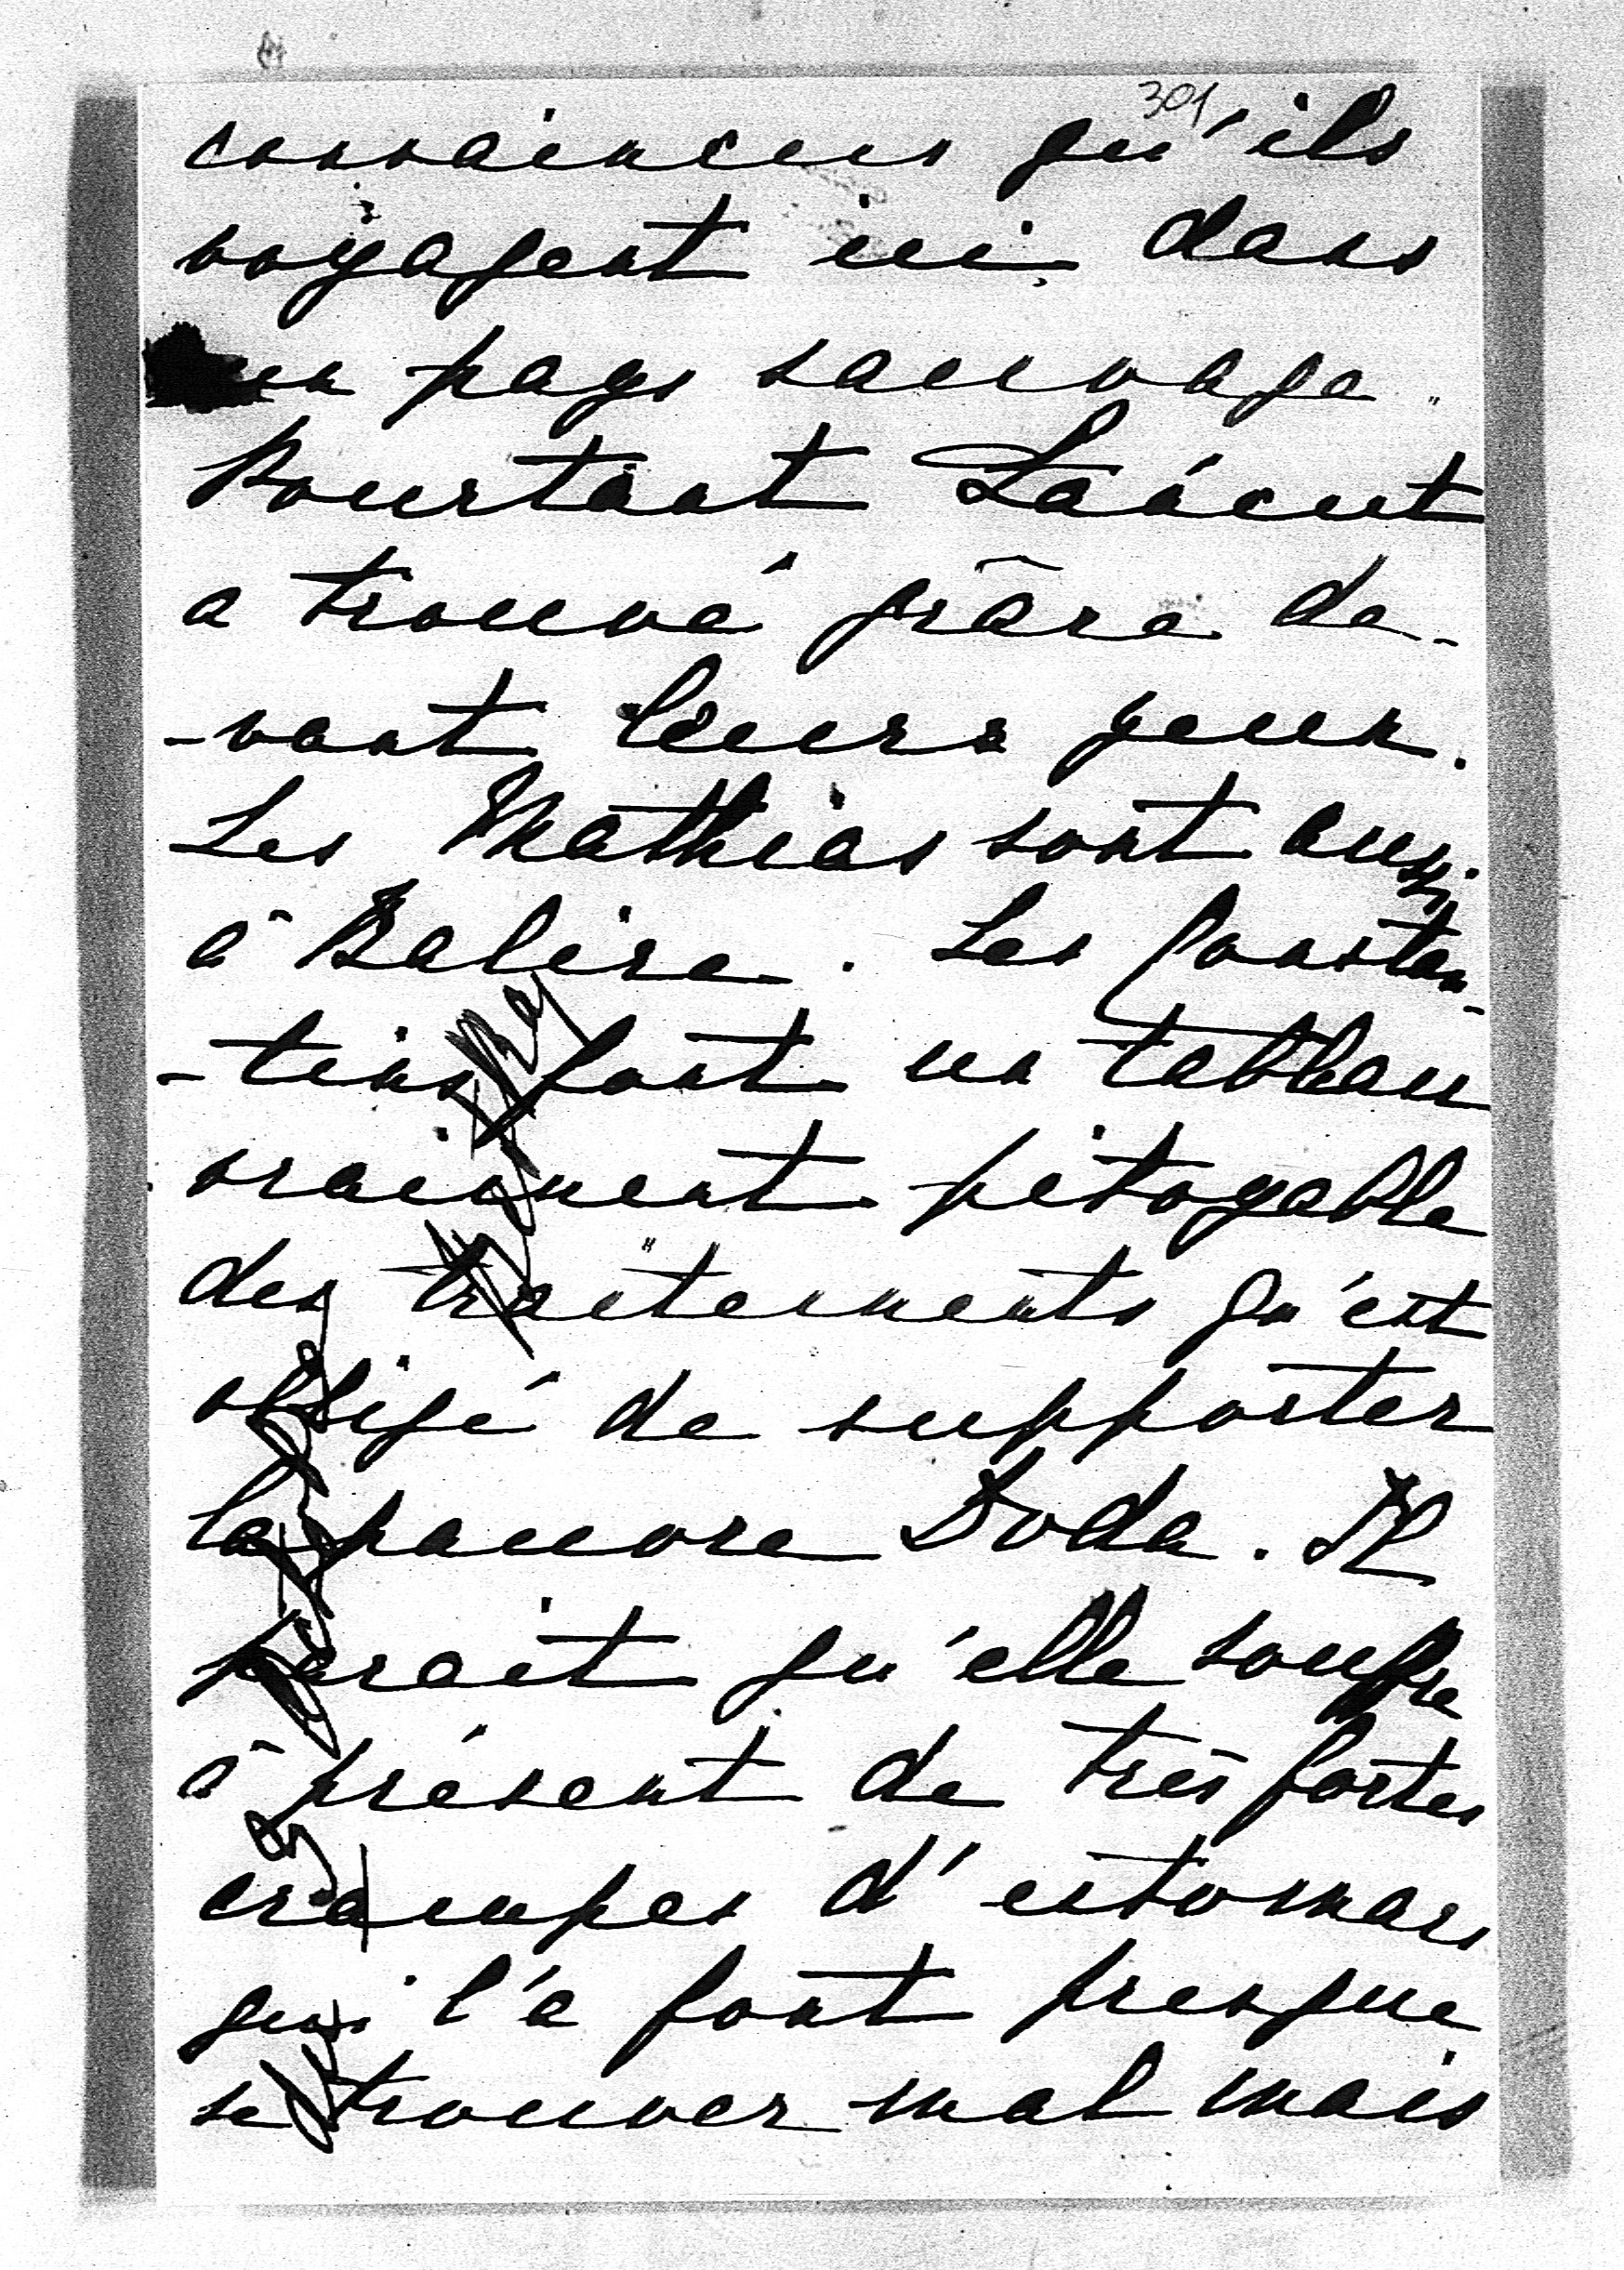 301
convaincus qu'ils
voyagent ici dans
un pays sauvage.
Pourtant Lăăcut
a trouvé grâce de-
-vant leurs yeux.
Les Mathias sont aussi
à Balira. Les Constan-
-tins font un tableau
vraiment pitoyable
des traitements qu'est
obligé de supporter
la pauvre Doda. Il
parait qu'elle souffre
à présent de très fortes
crampes d'estomac
qui l'a font presque
se trouver mal mais